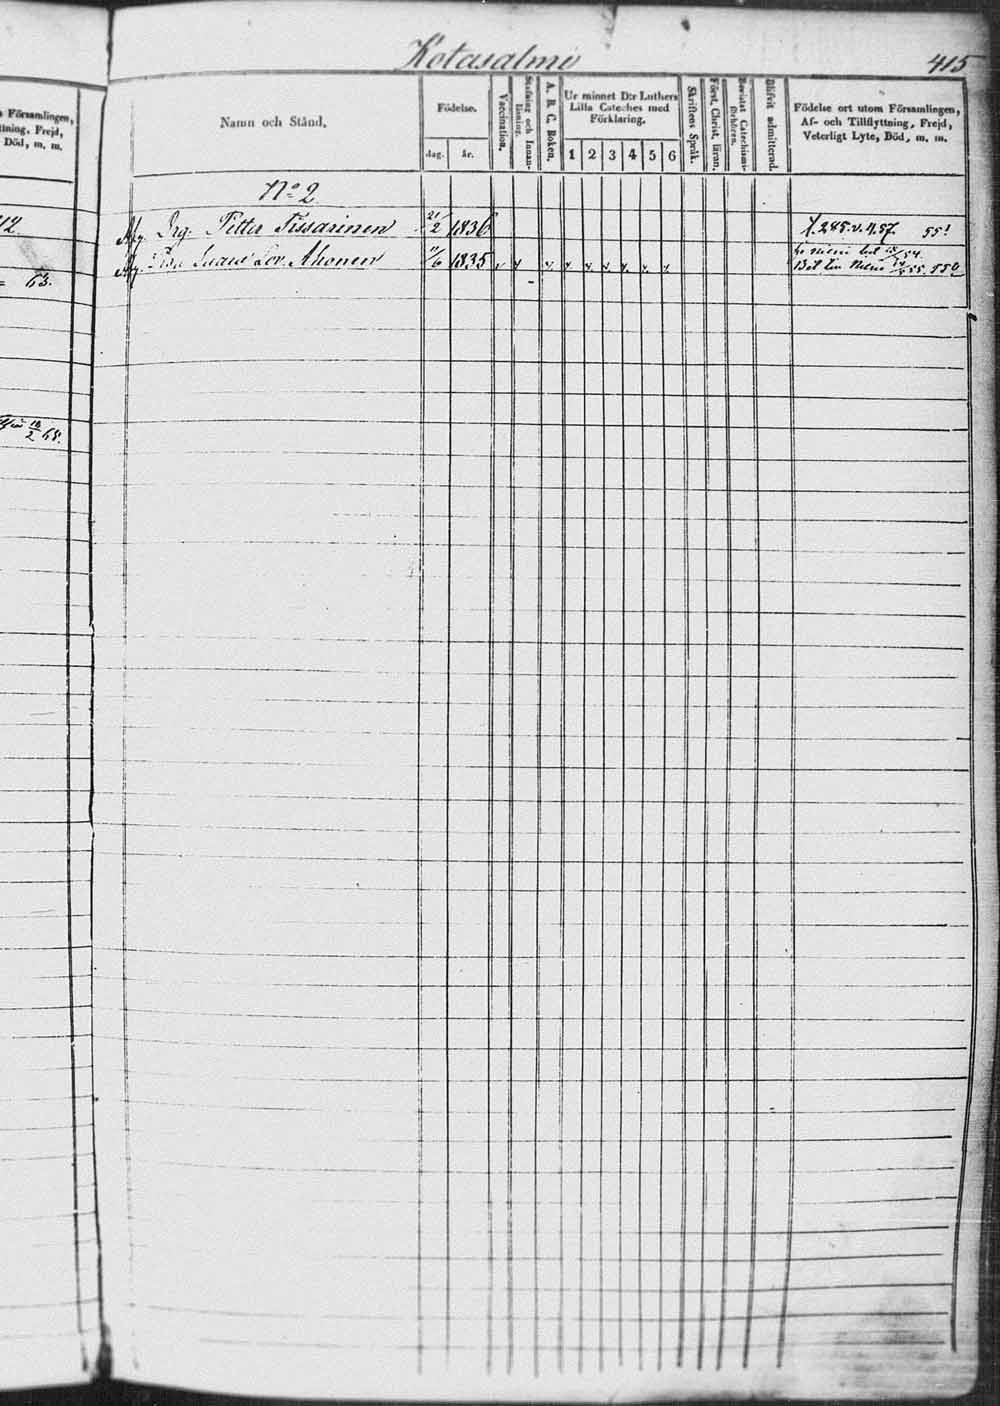 Kotasalmi
415
Församlingen,
ttning, Frejd,
Död, m. m.
Namn och Stånd.
Födelse.
dag. år.
Vaccination.
Stafning och Innan-läsning.
A. B. C. Boken.
Ur minnet D:r Luthers
Lilla Cateches med
Förklaring.
1 2 3 4 5 6
Skriftens Språk.
Först. Christ. läran.
Bevistat Catechismi-förhören.
Blifvit admitterad.
Födelse ort utom Församlingen,
Af- och Tillflyttning, Frejd,
Veterligt Lyte, Död, m. m.
No 2
Afg. Drg. Petter Tissarinen 21/2 1836 f. 285. v. 4. 57 55!
Afg. Lov. Ahonen 11/6 1835
63.
18/2 68.